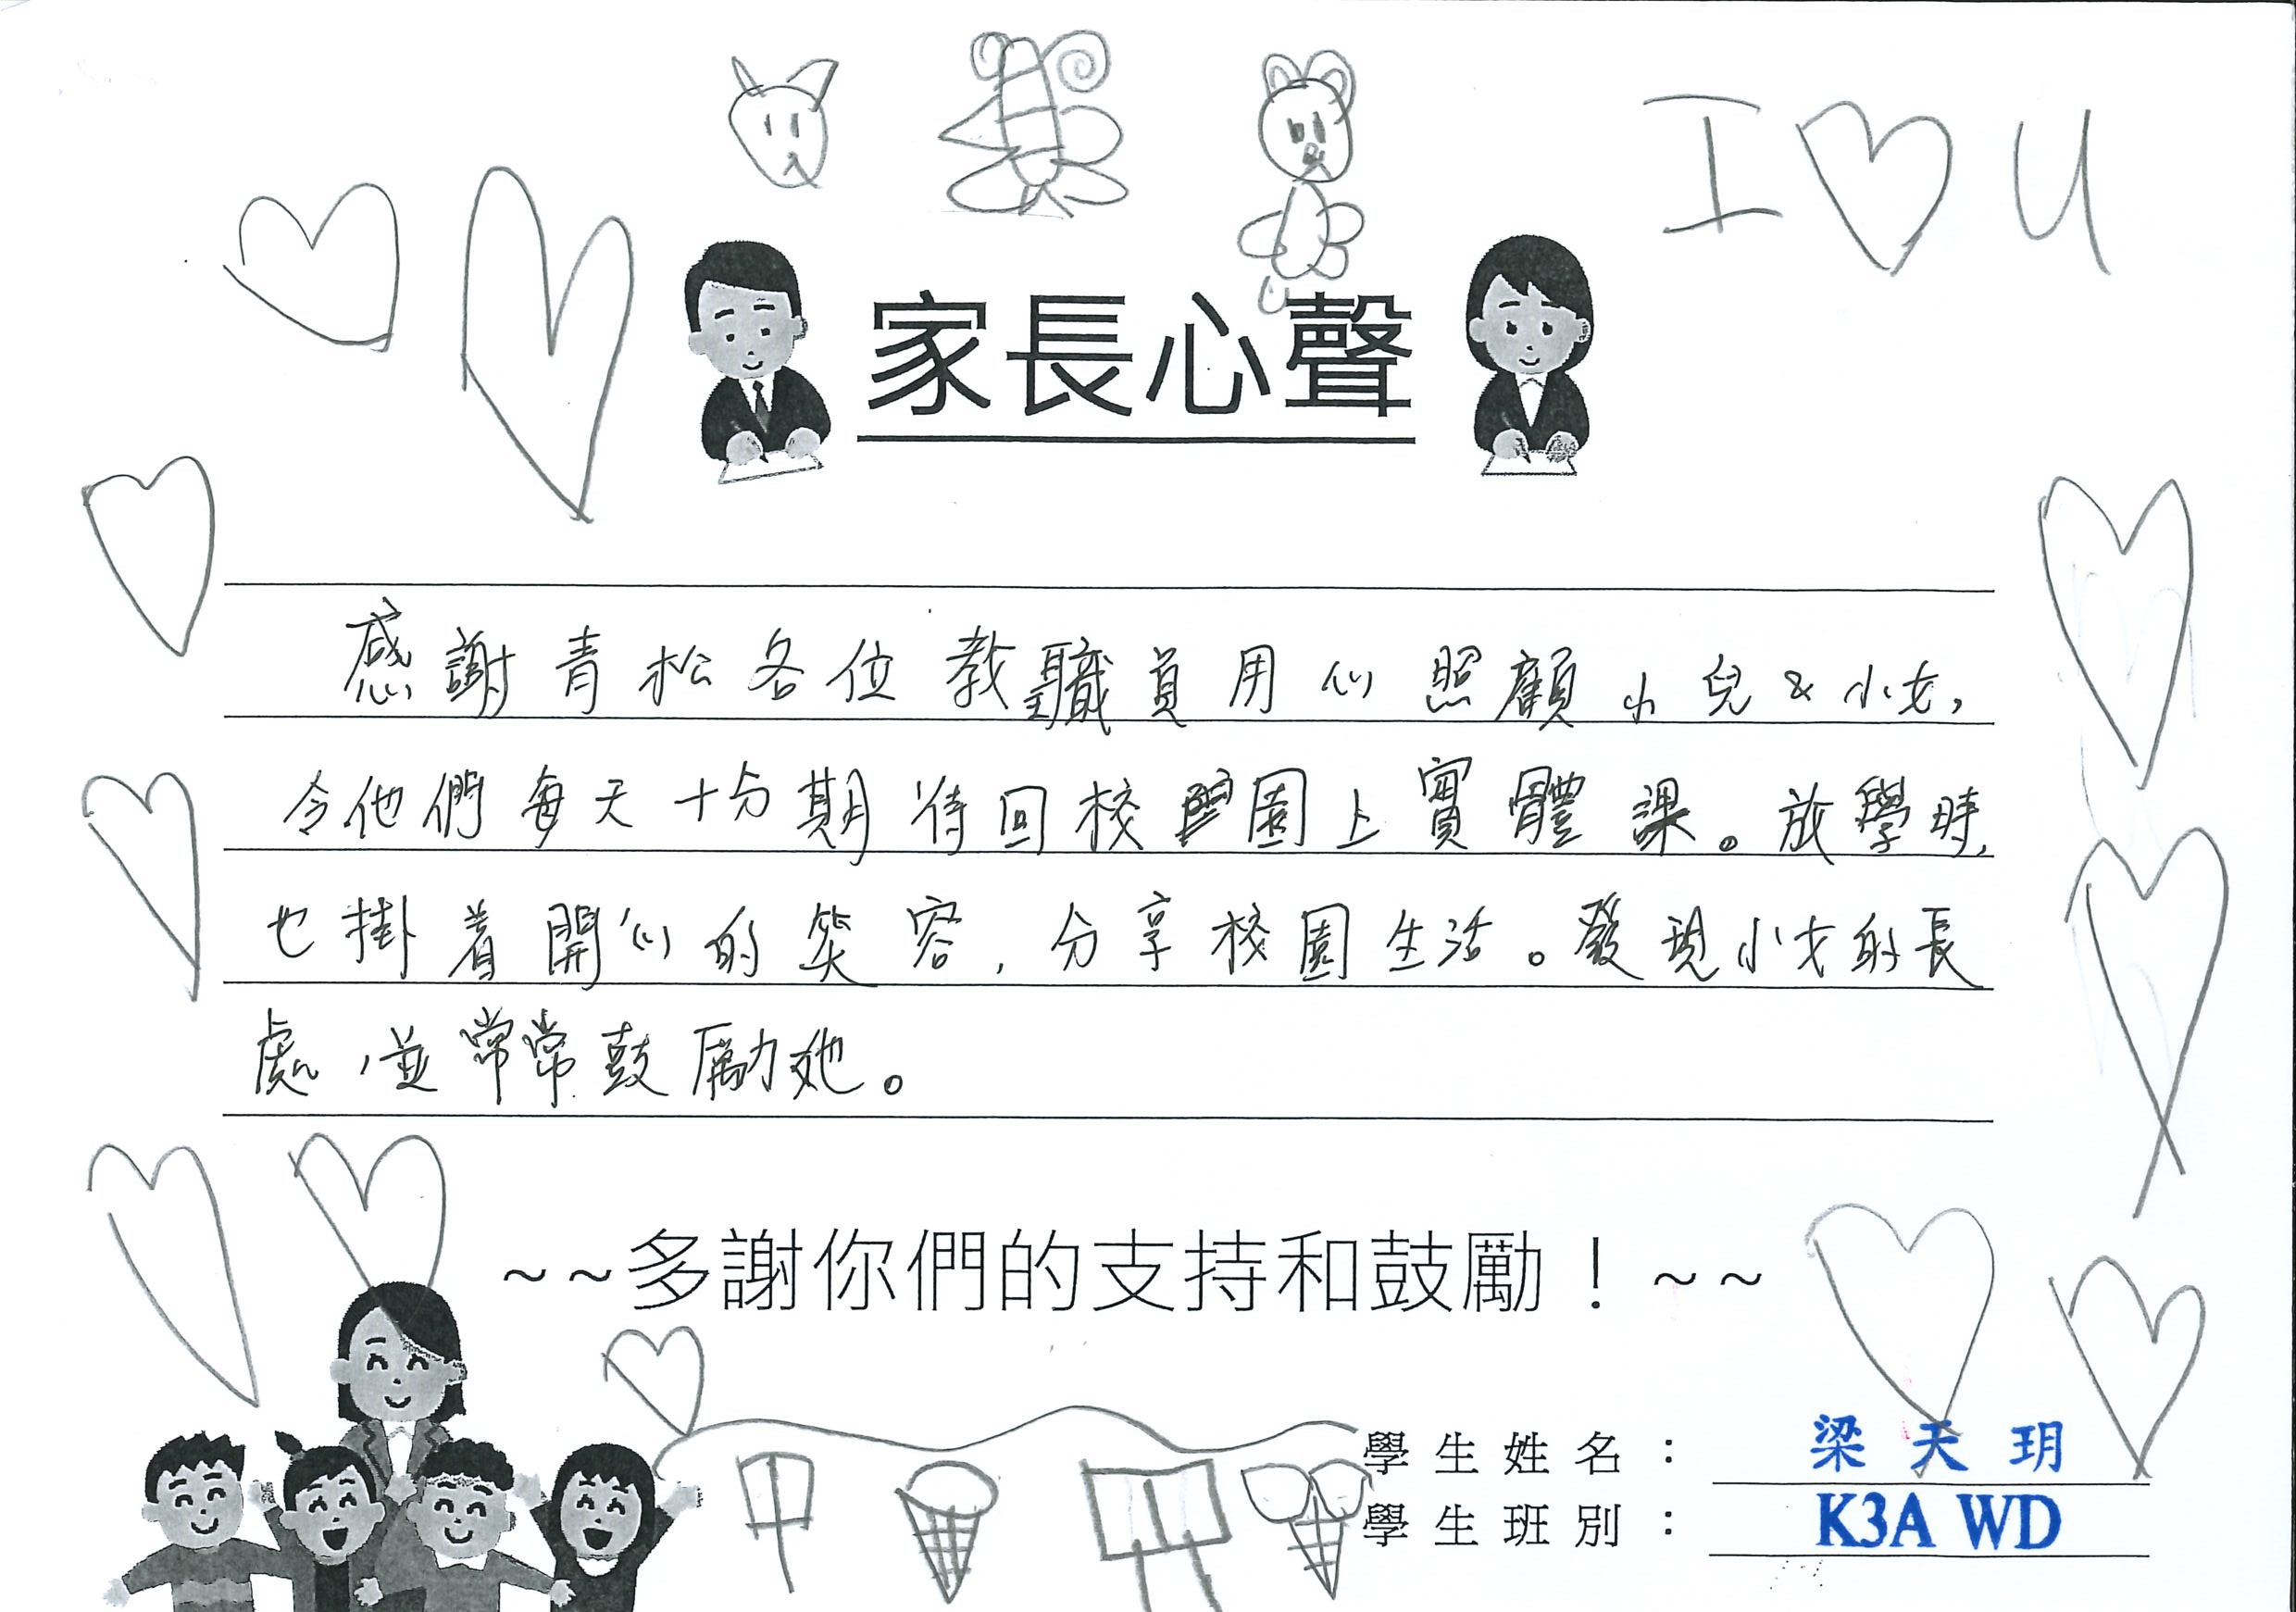 I ♡ U
家長心聲
感謝青松各位教職員用心照顧小兒&小女,
令他們每天十分期待回校園上實體課。放學時,
也掛着開心的笑容,分享校園生活。發現小女的長
處,並常常鼓勵她。
~~多謝你們的支持和鼓勵!~~
學生姓名: 梁天玥
學生班別: K3A WD